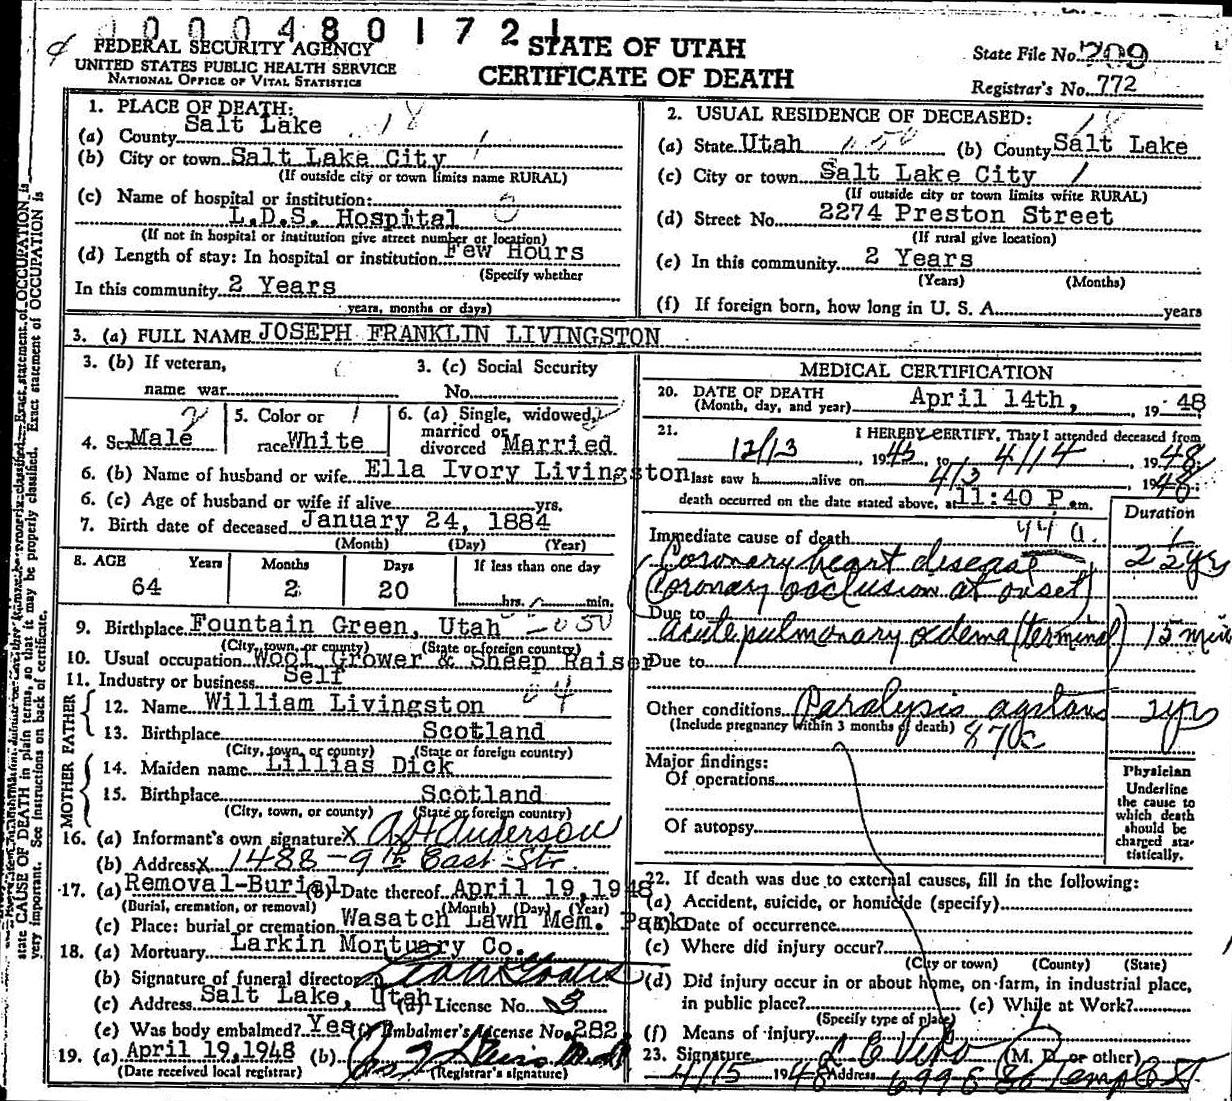 000480172
FEDERAL SECURITY AGENCY
UNITED STATES PUBLIC HEALTH SERVICE
NATIONAL OFFICE OF VITAL STATISTICS
STATE OF UTAH
CERTIFICATE OF DEATH
State File No. 709
Registrar's No. 772
1. PLACE OF DEATH:
(a) County Salt Lake 18
(b) City or town Salt Lake City 1
(If outside city or town limits name RURAL)
(c) Name of hospital or institution:
L.D.S. Hospital
(If not in hospital or institution give street number or location)
(d) Length of stay: In hospital or institution Few Hours
(Specify whether
In this community 2 Years
years, months or days)
2. USUAL RESIDENCE OF DECEASED: 18
(a) State Utah (b) County Salt Lake
(c) City or town Salt Lake City 1
(If outside city or town limits write RURAL)
(d) Street No. 2274 Preston Street
(If rural give location)
(e) In this community 2 Years
(Years) (Months)
(f) If foreign born, how long in U. S. A. years
3. (a) FULL NAME JOSEPH FRANKLIN LIVINGSTON
3. (b) If veteran,
name war
3. (c) Social Security
No.
4. Sex Male 2
5. Color or 1
race White
6. (a) Single, widowed, 2
married or
divorced Married
6. (b) Name of husband or wife Ella Ivory Livingston
6. (c) Age of husband or wife if alive yrs.
7. Birth date of deceased January 24, 1884
(Month) (Day) (Year)
8. AGE Years Months Days If less than one day
64 2 20 hrs. min.
9. Birthplace Fountain Green, Utah
(City, town, or county) (State or foreign country)
10. Usual occupation Wool Grower & Sheep Raiser
11. Industry or business Self
FATHER
12. Name William Livingston
13. Birthplace Scotland
(City, town, or county) (State or foreign country)
MOTHER
14. Maiden name Lillias Dick
15. Birthplace Scotland
(City, town, or county) (State or foreign country)
16. (a) Informant's own signature X A H Anderson
(b) Address X 1488 - 9th East Str.
17. (a) Removal-Burial (b) Date thereof April 19, 1948
(Burial, cremation, or removal) (Month) (Day) (Year)
(c) Place: burial or cremation Wasatch Lawn Mem. Park
18. (a) Mortuary Larkin Mortuary Co.
(b) Signature of funeral director
(c) Address Salt Lake, Utah (d) License No. 3
(e) Was body embalmed? Yes (f) Embalmer's License No. 282
19. (a) April 19, 1948 (b)
(Date received local registrar) (Registrar's signature)
MEDICAL CERTIFICATION
20. DATE OF DEATH
(Month, day, and year) April 14th, , 19 48
21. I HEREBY CERTIFY, That I attended deceased from
12/13 , 1945, to 4/14 , 1948,
last saw h alive on 4/3 , 1948
death occurred on the date stated above, at 11:40 P. m.
Duration
Immediate cause of death 94 a.
Coronary heart disease
(Coronary occlusion at onset) 2 1/2 yrs
Due to
Acute pulmonary edema (terminal) 15 min
Due to
Other conditions Paralysis agitans 2 yrs
(Include pregnancy within 3 months of death) 87c
Major findings:
Of operations
Of autopsy
Physician
Underline
the cause to
which death
should be
charged sta-
tistically.
22. If death was due to external causes, fill in the following:
(a) Accident, suicide, or homicide (specify)
(b) Date of occurrence
(c) Where did injury occur?
(City or town) (County) (State)
(d) Did injury occur in or about home, on farm, in industrial place,
in public place? (e) While at Work?
(Specify type of place)
(f) Means of injury
23. Signature L C Viko (M. D. or other)
4/15 1948 Address 699 E So Temple St.
state CAUSE OF DEATH in plain terms, so that it may be properly classified. Exact statement of OCCUPATION is
very important. See instructions on back of certificate.